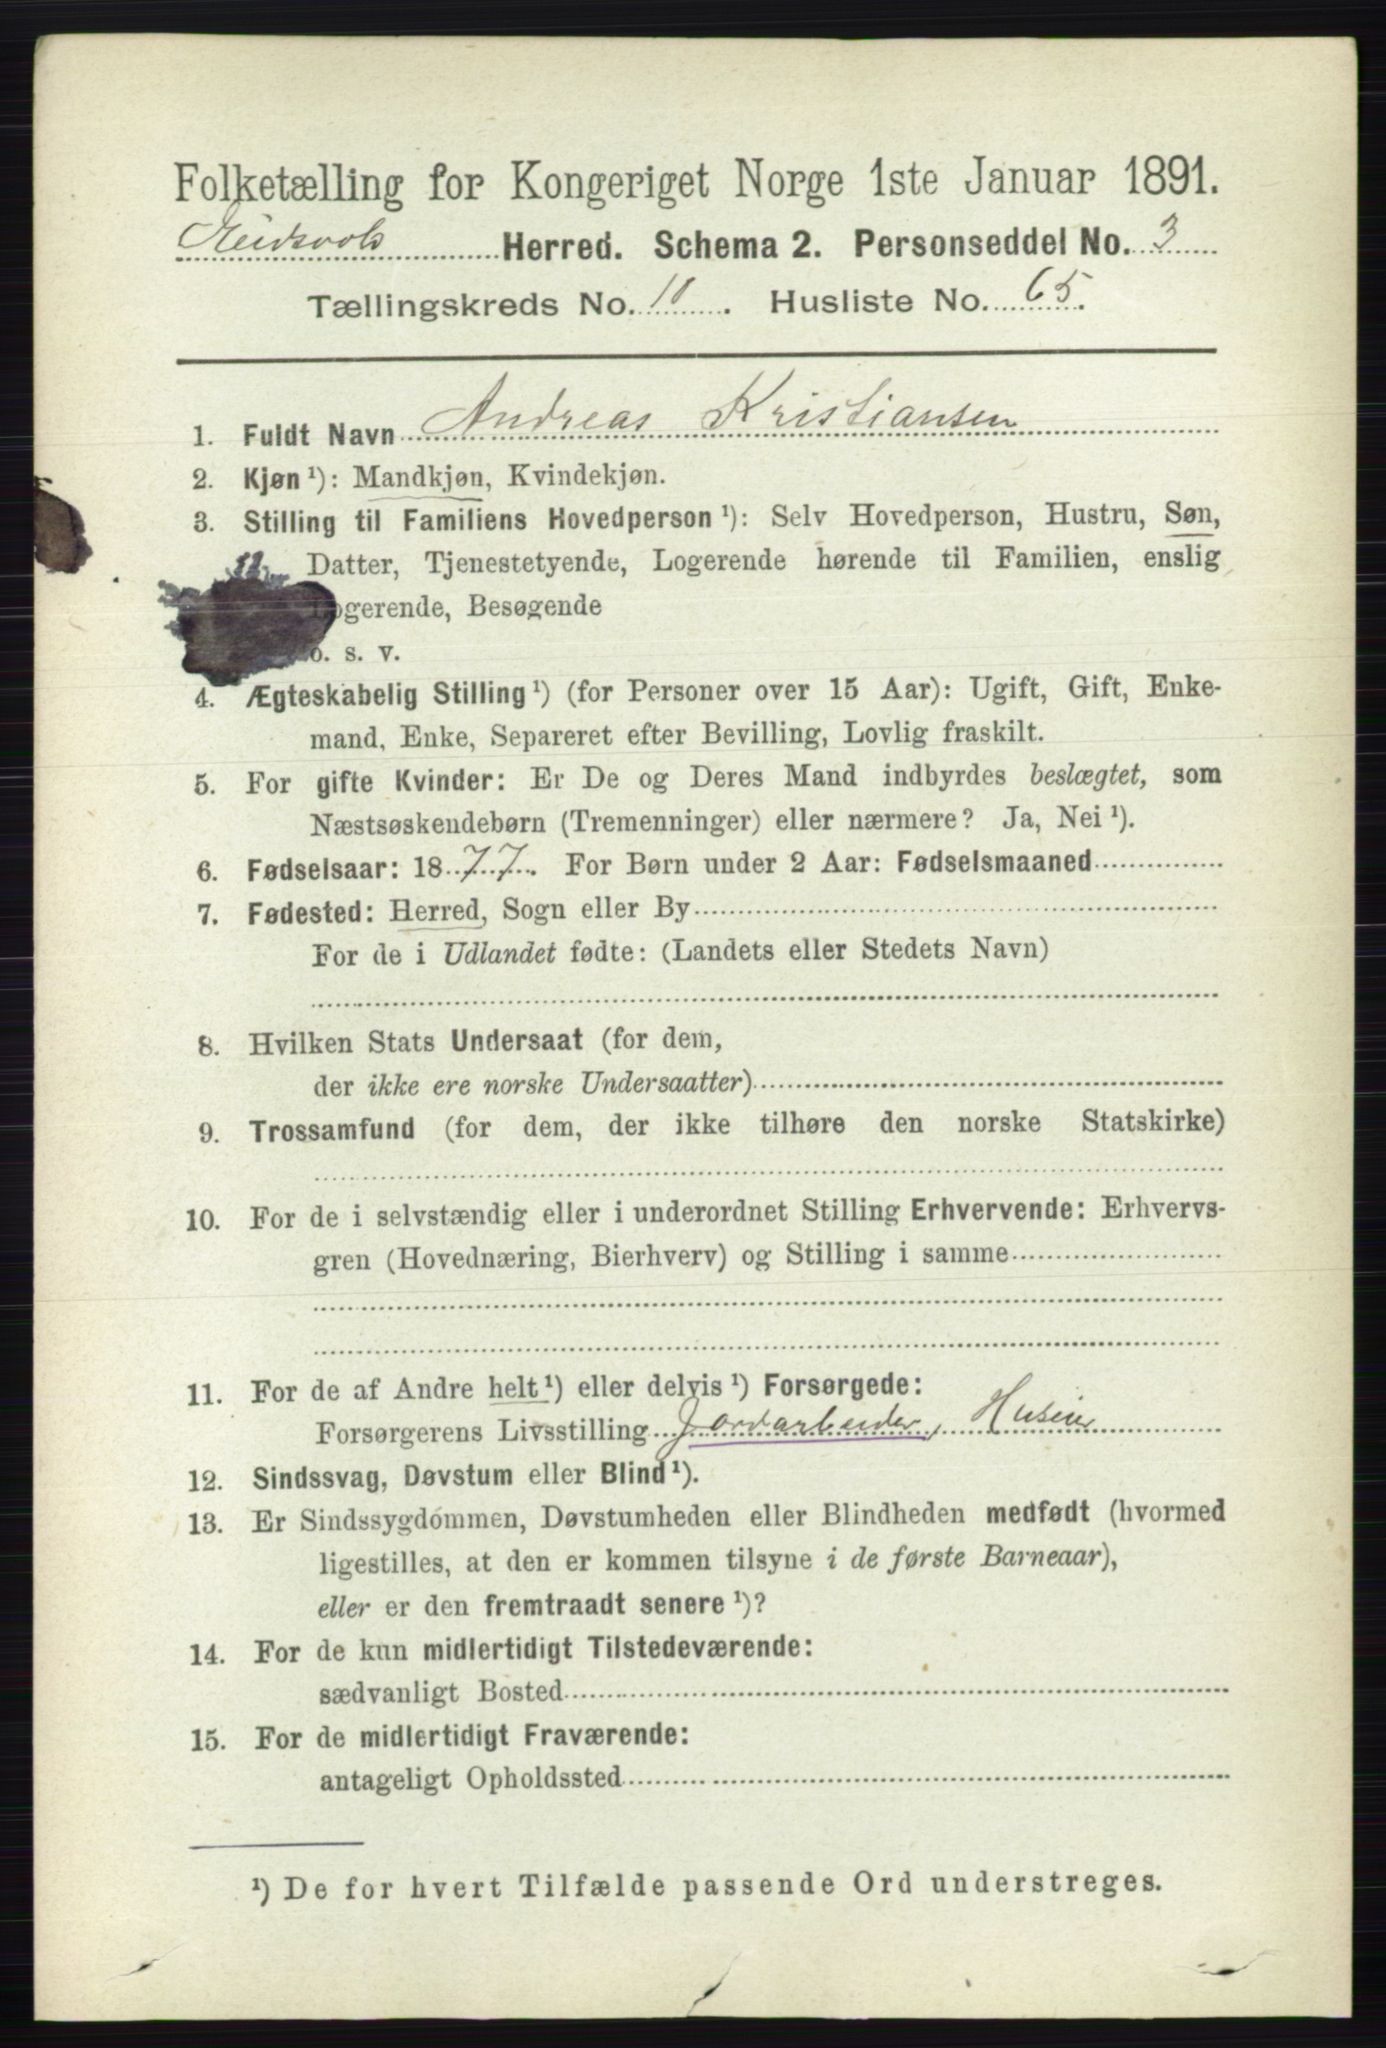 Folketælling for Kongeriget Norge 1ste Januar 1891.
Eidsvols Herred. Schema 2. Personseddel No. 3
Tællingskreds No. 10. Husliste No. 65.
1. Fuldt Navn Andreas Kristiansen
2. Kjøn¹): Mandkjøn, Kvindekjøn.
3. Stilling til Familiens Hovedperson¹): Selv Hovedperson, Hustru, Søn,
Datter, Tjenestetyende, Logerende hørende til Familien, enslig
Logerende, Besøgende
o. s. v.
4. Ægteskabelig Stilling¹) (for Personer over 15 Aar): Ugift, Gift, Enke-
mand, Enke, Separeret efter Bevilling, Lovlig fraskilt.
5. For gifte Kvinder: Er De og Deres Mand indbyrdes beslægtet, som
Næstsøskendebørn (Tremenninger) eller nærmere? Ja, Nei¹).
6. Fødselsaar: 1877. For Børn under 2 Aar: Fødselsmaaned
7. Fødested: Herred, Sogn eller By
For de i Udlandet fødte: (Landets eller Stedets Navn)
8. Hvilken Stats Undersaat (for dem,
der ikke ere norske Undersaatter)
9. Trossamfund (for dem, der ikke tilhøre den norske Statskirke)
10. For de i selvstændig eller i underordnet Stilling Erhvervende: Erhvervs-
gren (Hovednæring, Bierhverv) og Stilling i samme
11. For de af Andre helt¹) eller delvis¹) Forsørgede:
Forsørgerens Livsstilling Jordarbeider, Huseier
12. Sindssvag, Døvstum eller Blind¹).
13. Er Sindssygdommen, Døvstumheden eller Blindheden medfødt (hvormed
ligestilles, at den er kommen tilsyne i de første Barneaar),
eller er den fremtraadt senere¹)?
14. For de kun midlertidigt Tilstedeværende:
sædvanligt Bosted
15. For de midlertidigt Fraværende:
antageligt Opholdssted
¹) De for hvert Tilfælde passende Ord understreges.